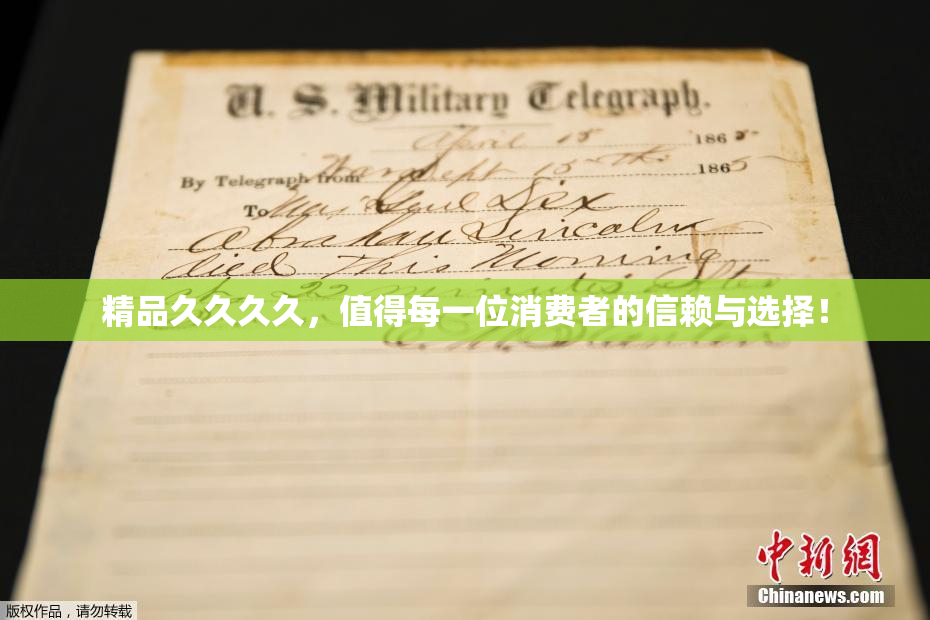 U. S. Military Telegraph.
April 15 1865
By Telegraph from War Dept 15th 1865
To Maj Genl Dix
Abraham Lincoln
died This Morning
at 22 minutes after
精品久久久久，值得每一位消费者的信赖与选择！
E. M. Stanton
中新网
Chinanews.com
版权作品，请勿转载